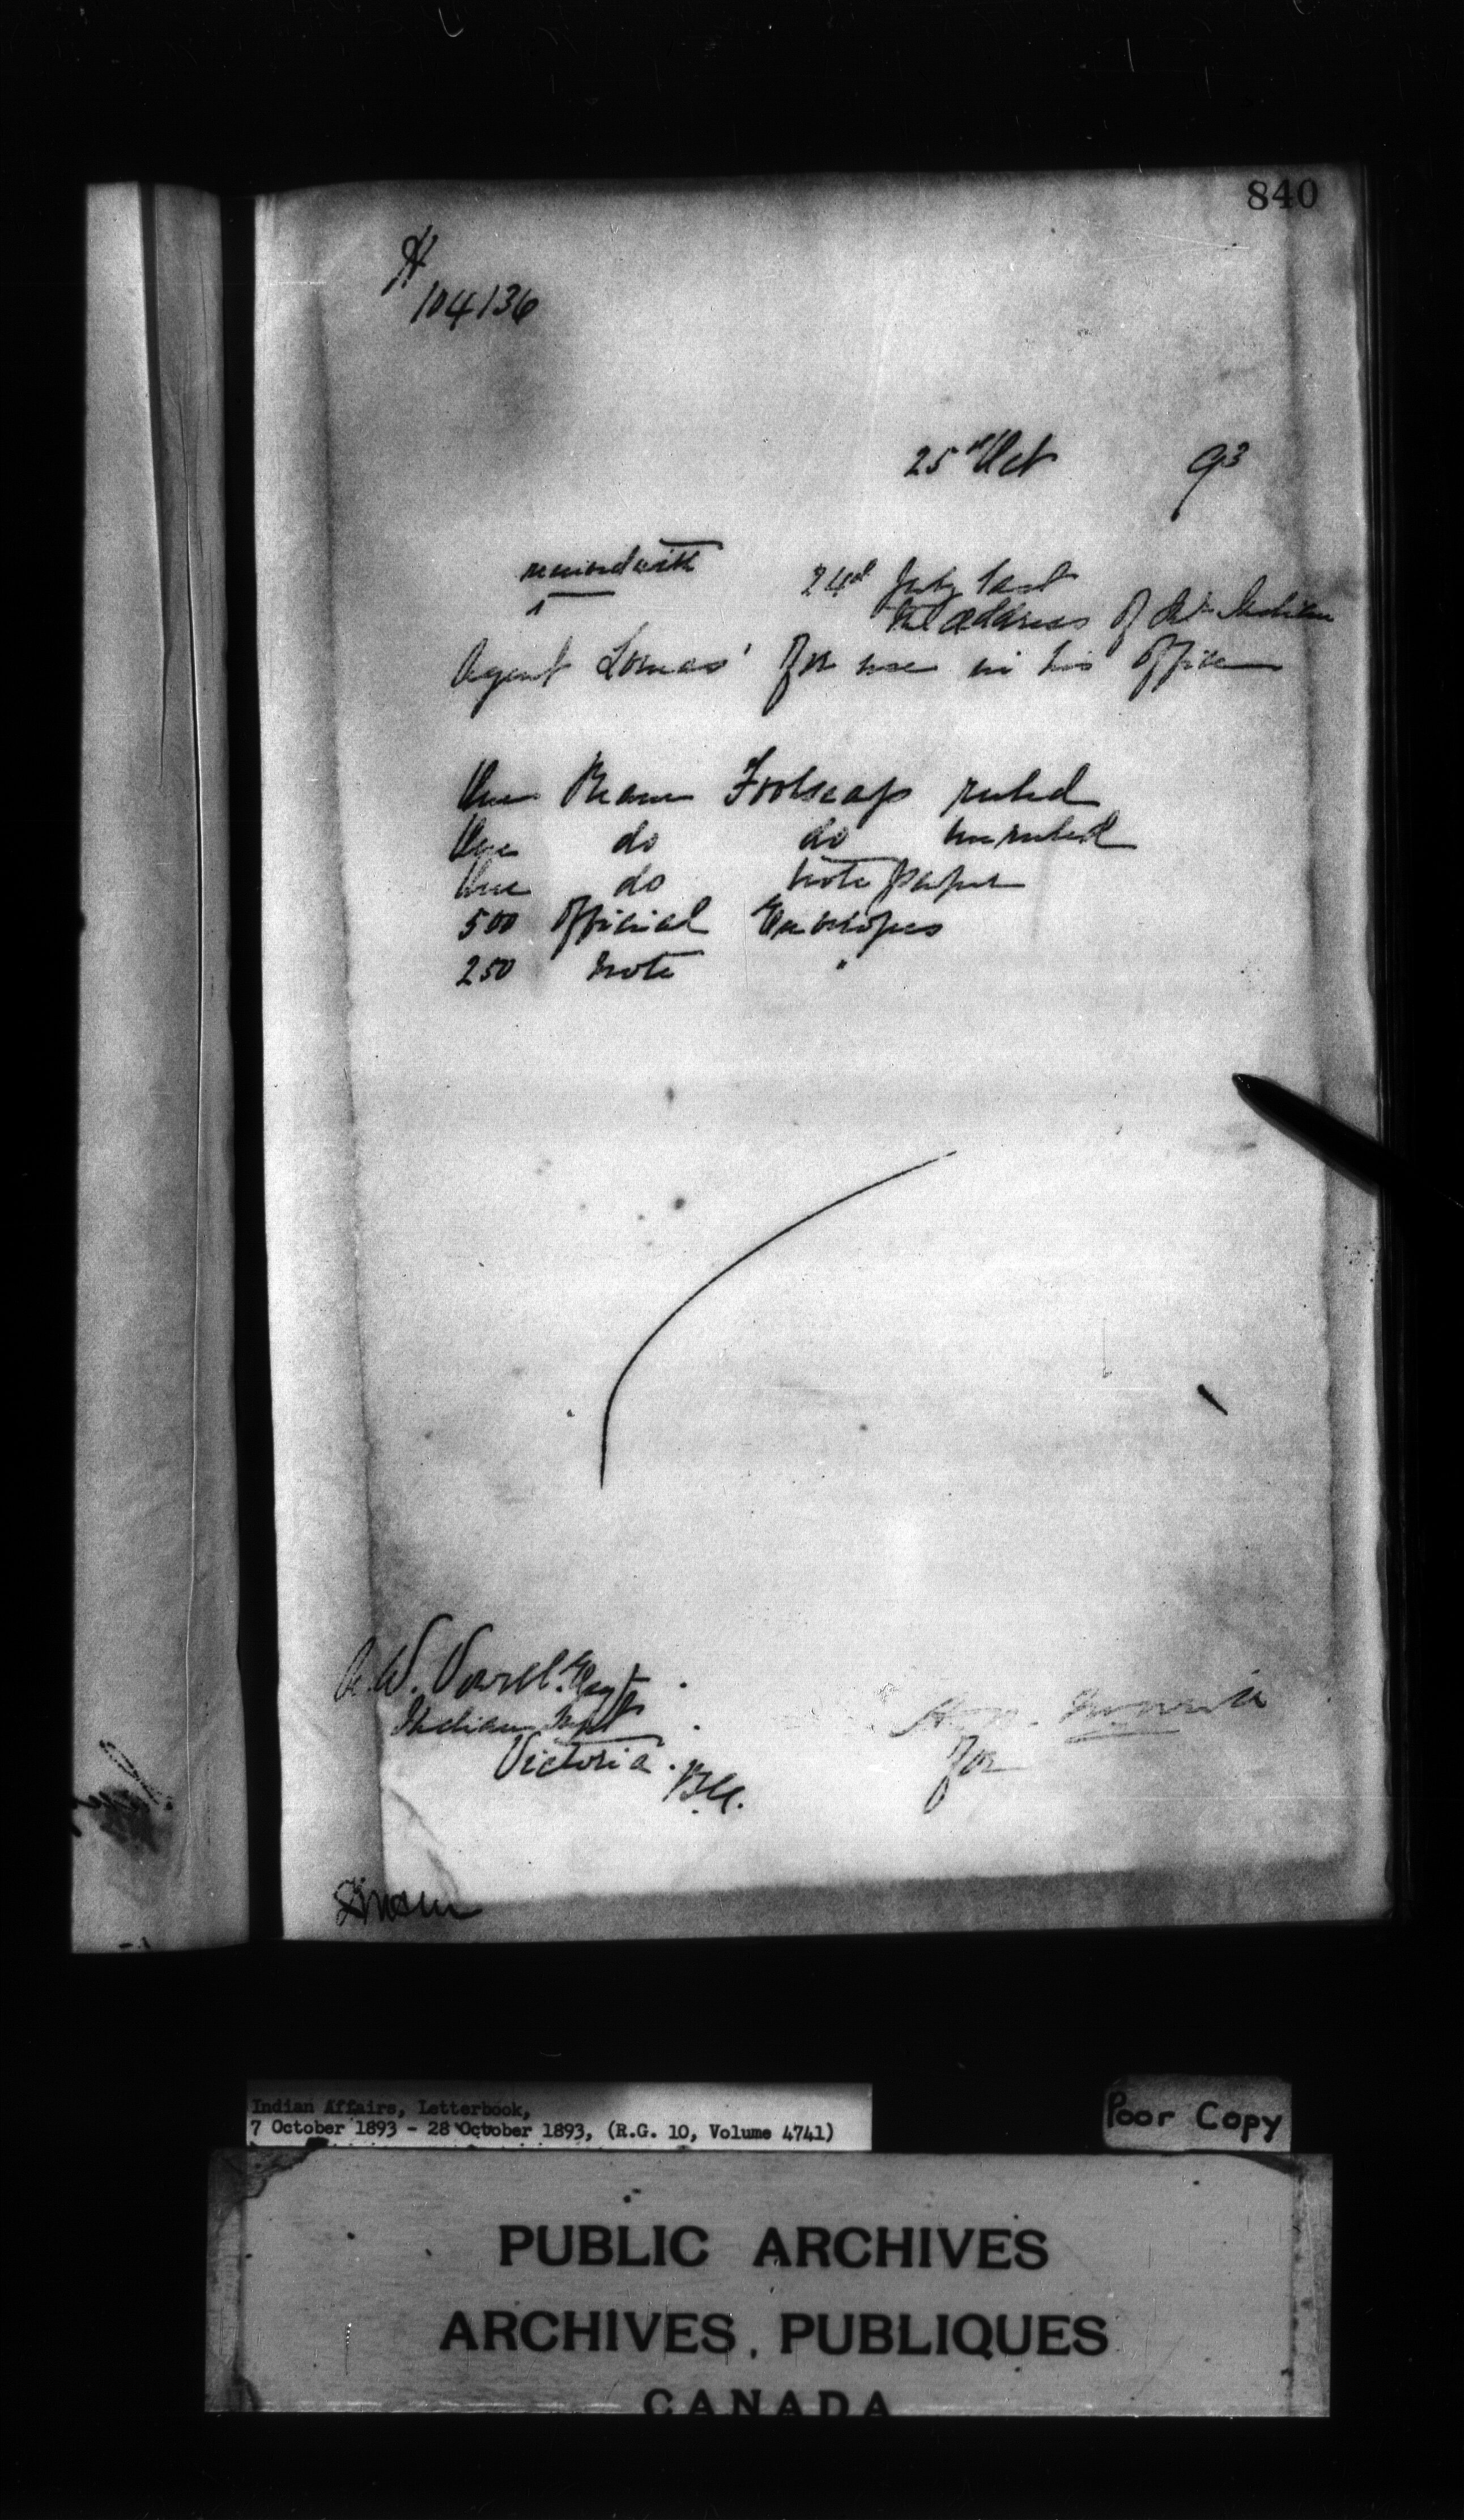 840
104136
25th Oct 93
24th July last
the address of Mr Indian
Agent Lomas' for use in his office
One Ream Foolscap ruled
One do do unruled
One do note paper
500 Official Envelopes
250 Note "
A.W. Vowell Esq
Indian Supt
Victoria. B.C.
for
Indian Affairs, Letterbook,
7 October 1893 - 28 October 1893, (R.G. 10, Volume 4741)
Poor Copy
PUBLIC ARCHIVES
ARCHIVES PUBLIQUES
CANADA